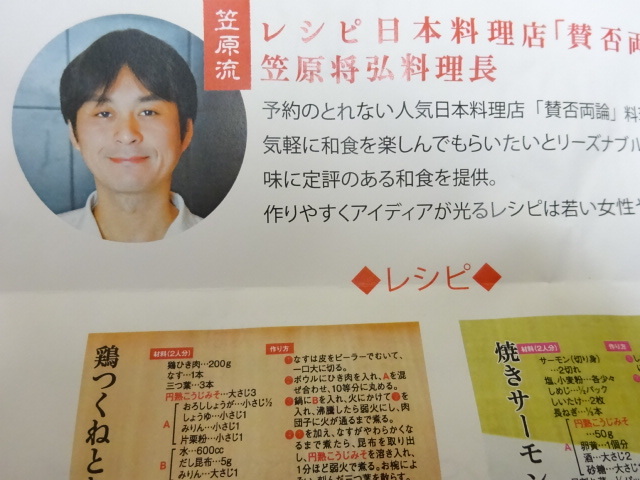 笠原流
レシピ日本料理店「賛否両
笠原将弘料理長
予約のとれない人気日本料理店「賛否両論」料
気軽に和食を楽しんでもらいたいとリーズナブル
味に定評のある和食を提供。
作りやすくアイディアが光るレシピは若い女性や
◆レシピ◆
鶏つくねと
材料(2人分)
鶏ひき肉…200g
なす…1本
三つ葉…3本
円熟こうじみそ…大さじ3
A
おろししょうが…小さじ½
しょうゆ…小さじ1
みりん…小さじ1
片栗粉…小さじ1
B
水…600cc
だし昆布…5g
みりん…大さじ1
作り方
❶なすは皮をピーラーでむいて、
一口大に切る。
❷ボウルにひき肉を入れ、Aを混
ぜ合わせ、10等分に丸める。
❸鍋にBを入れ、火にかけて❷を
入れ、沸騰したら弱火にし、肉
団子に火が通るまで煮る。
を加え、なすがやわらかくな
るまで煮たら、昆布を取り出
し、円熟こうじみそを溶き入れ、
1分ほど弱火で煮る。お椀によ
そい、刻んだ三つ葉を散らす。
焼きサーモン
材料(2人分)
サーモン(切り身)
…2切れ
塩、小麦粉…各少々
しめじ…½パック
しいたけ…2枚
長ねぎ…½本
A
円熟こうじみそ
…50g
卵黄…1個分
酒…大さじ2
砂糖…大さじ
作り方